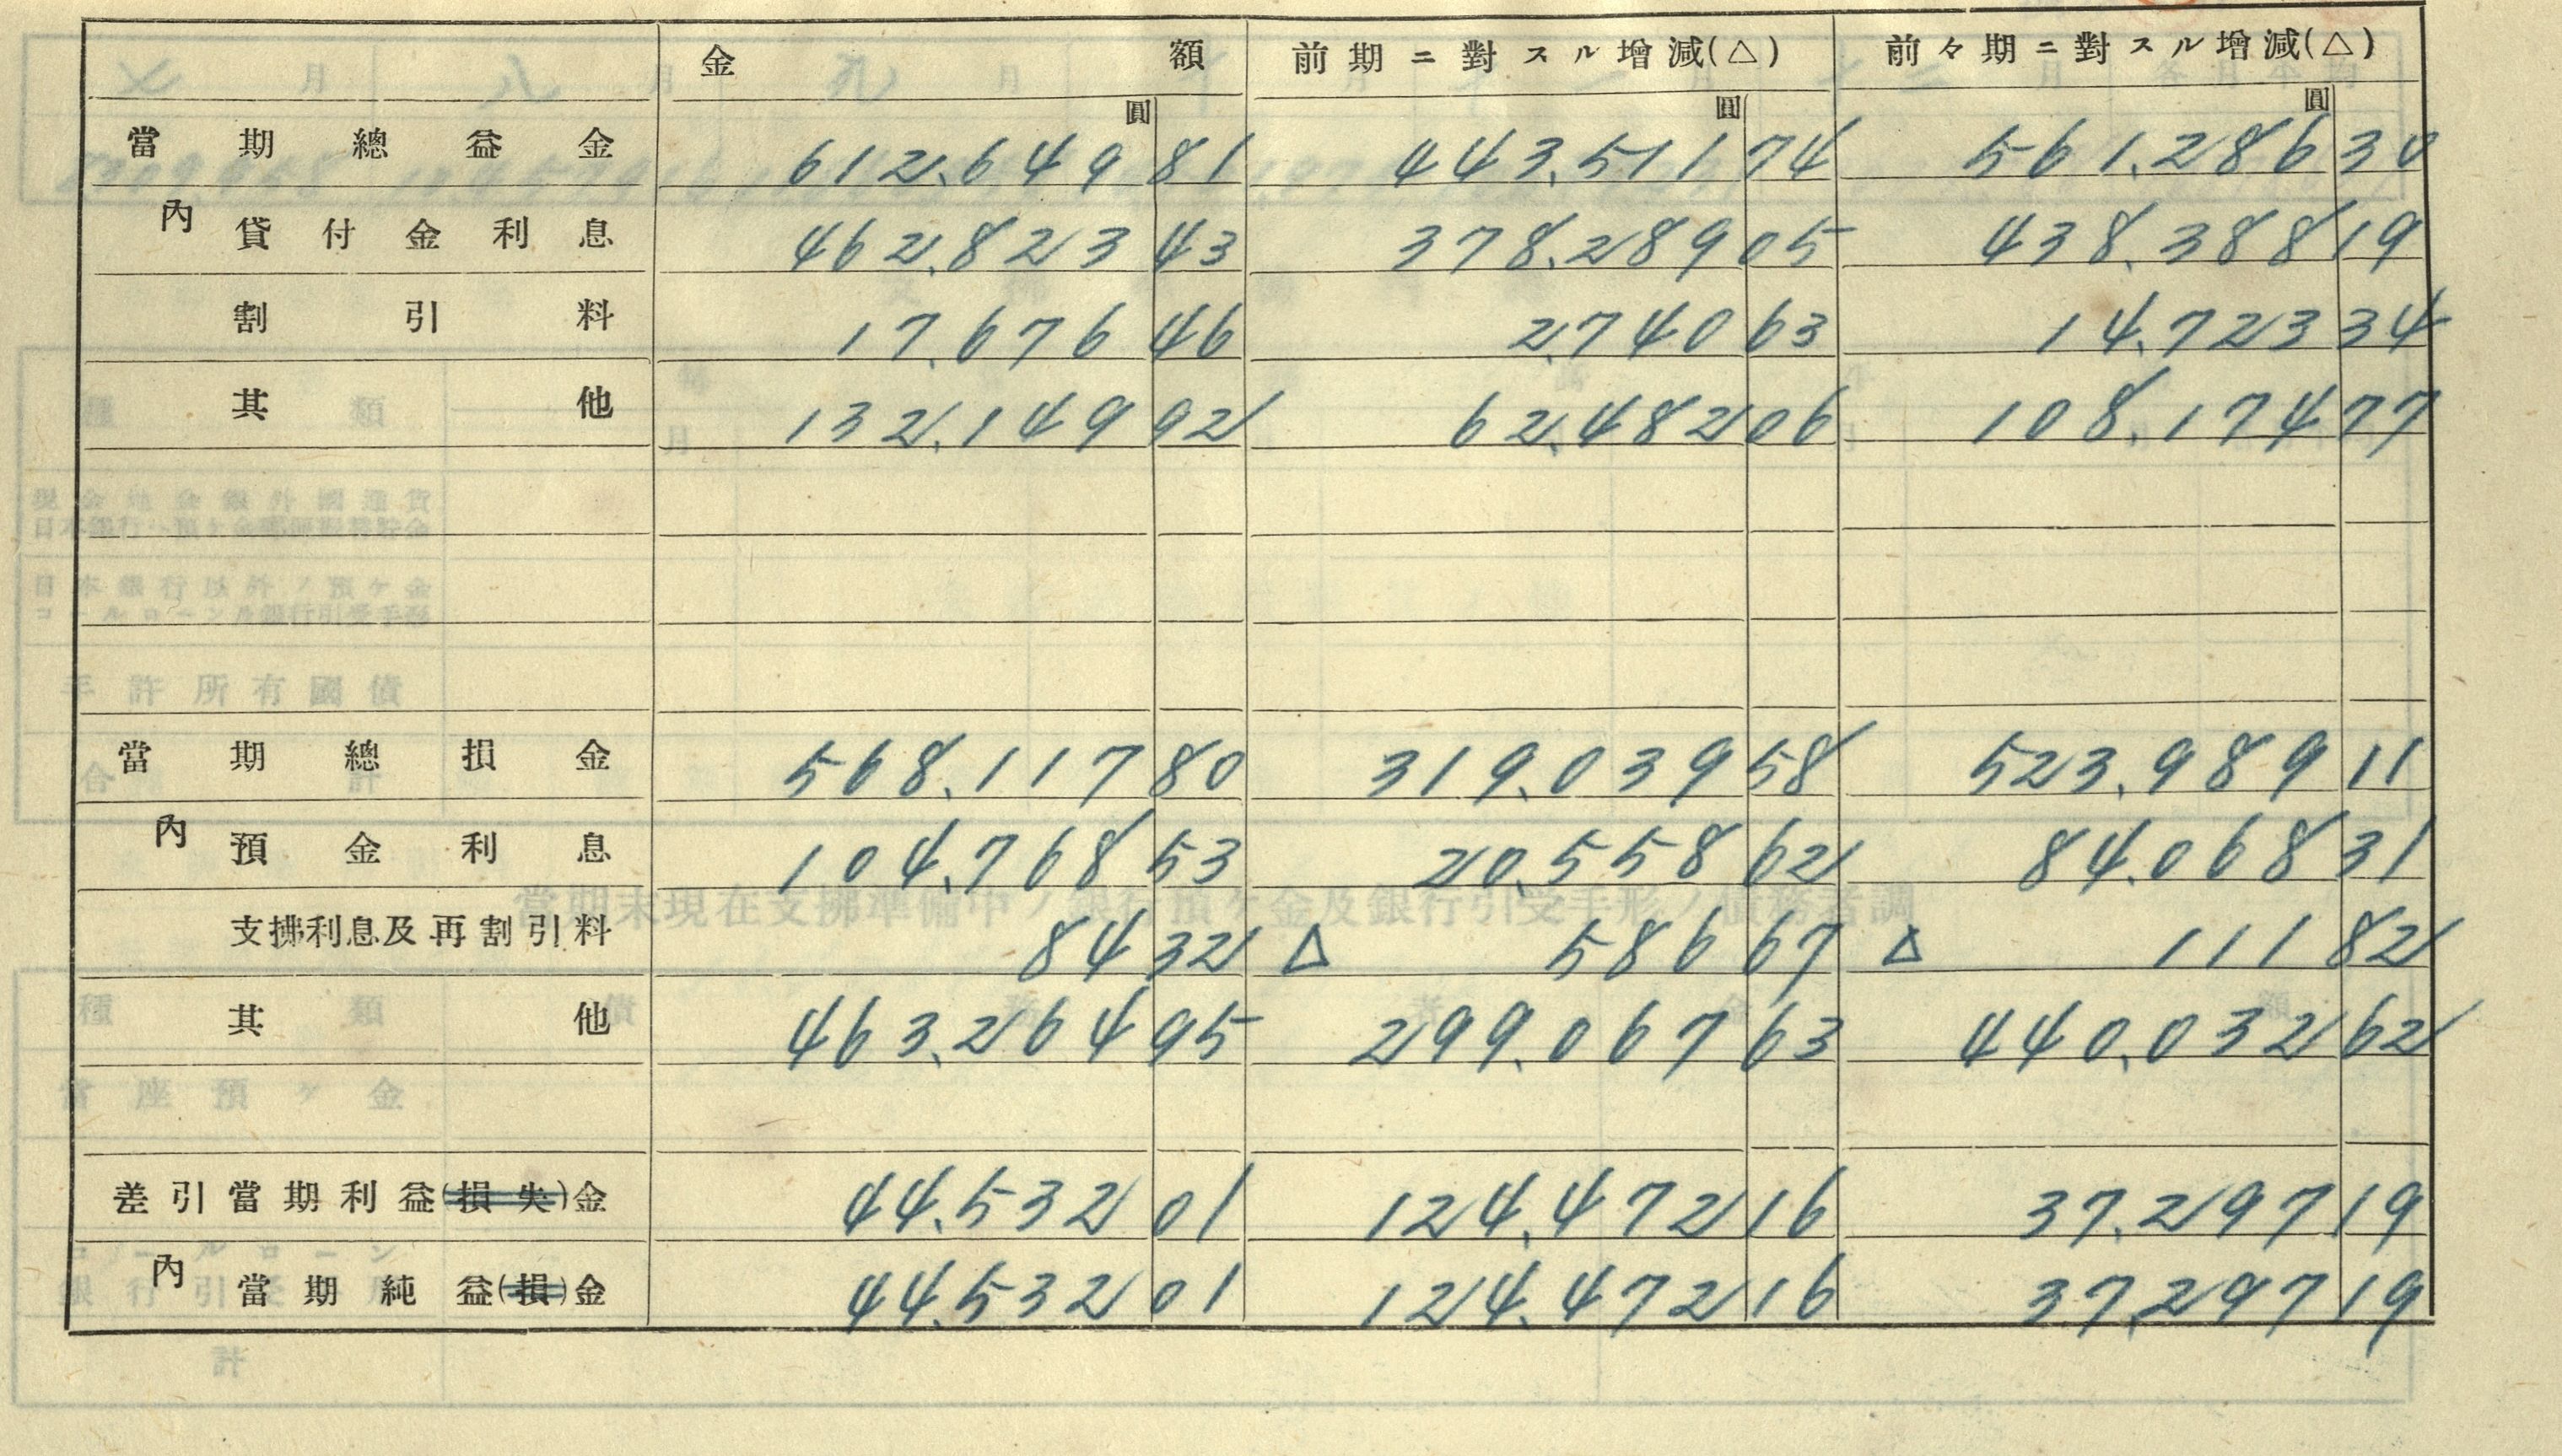 金額 前期ニ對スル增減(△) 前々期ニ對スル增減(△)
圓 圓 圓
當期總益金 612,649 81 443,511 74 561,286 30
內 貸付金利息 462,823 43 378,289 05 438,388 19
割引料 17,676 46 2,740 63 14,723 34
其他 132,149 92 62,482 06 108,174 77
當期總損金 568,117 80 319,039 58 523,989 11
內 預金利息 104,768 53 20,558 62 84,068 31
支拂利息及再割引料 84 32 △ 586 67 △ 111 82
其他 463,264 95 299,067 63 440,032 62
差引當期利益(損失)金 44,532 01 124,472 16 37,297 19
內 當期純益(損)金 44,532 01 124,472 16 37,297 19